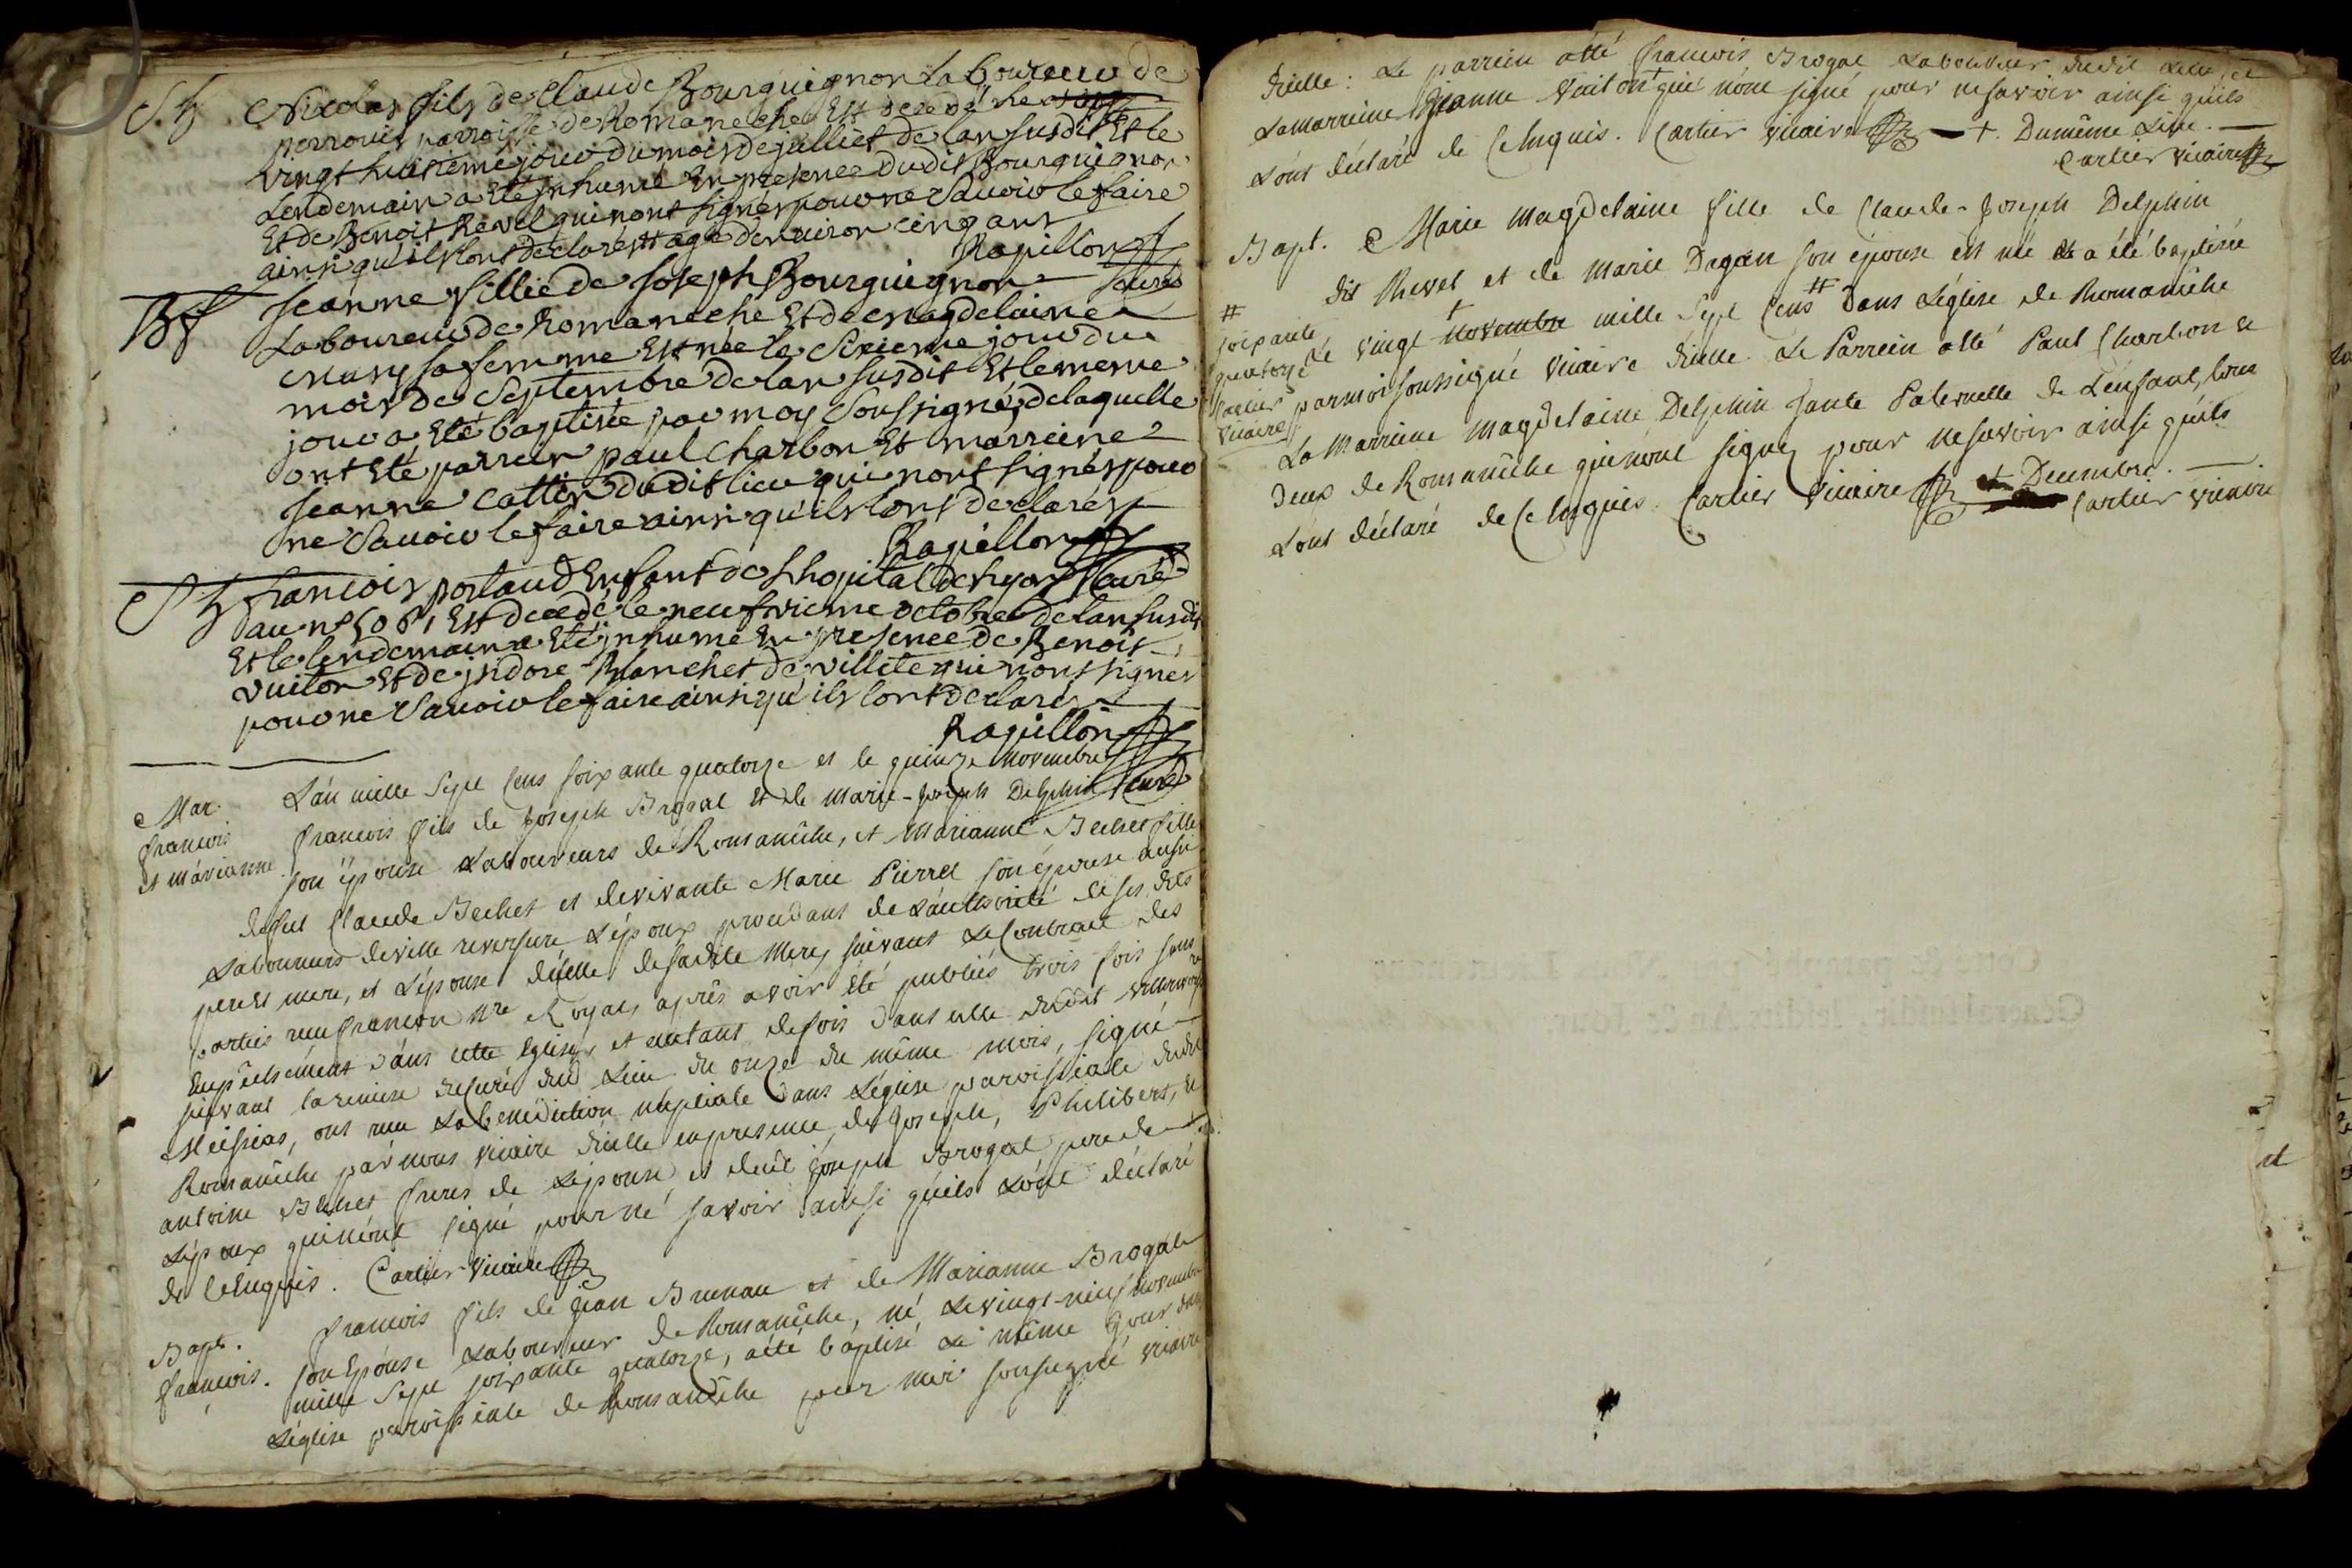 S.h Nicolas fils de Claude Bourguignon Laboureur de
perrouis parroisse de Romaneche Est decedé le
vingt huitieme jour du mois de jullièt de lan susdit Et le
Lendemain a Eté jnhumé En presence dudit Bourguignon
Et de Benoit Revel qui n'ont signés pour ne Sauoir le faire
ainsi qu'ils l'ont declarés agé denuiron cinq ans
Rapillon
Curé
Bf Jeanne fillie de Joseph Bourguignon
Laboureur de Romaneche Et de Magdelaine
sa femme Est née le Sixieme jour du
mois de Septembre de lan susdit Et le meme
jour a Eté baptisée par moy Soussigné, de laquelle
ont Eté parrein paul Charbon Et marreine
Jeanne Cattin dudit lieu qui n'ont signés pour
ne Sauoir le faire ainsi qu'ils l'ont declarés
Rapillon
Curé
S h francois portaud Enfant de l'hopital de lyon
au n° 5081 Est decedé le neufvieme octobre de lan susdit
Et le lendemain a Eté jnhumé En presence de Benoit
vuiton Et de jsidore Blanchet de villete qui n'ont signés
pour ne Sauoir le faire ainsi qu'ils l'ont declarés
Rapillon
Curé
Mar. L'an mille Sept Cens soixante quatorze et le quinze novembre
francois francois fils de Joseph Brogal et de Marie-Joseph Delphin
et marianne. son épouse Laboureurs de Romanêche, et Marianne Bechet fille
defut Claude Bechet et devivante Marie Pierrel son épouse aussi
Laboureurs deville reversure, L'époux procedant de L'authorité de ses dits
pere et mere, et L'épouse d'elle de sadite Mere, suivant Le Contract des
parties reçu francon nre Royal, après avoir été publiés trois fois sans
Empêchement dans cette Eglise, et autant defois dans celle dudit
suivant la remise du Curé dud Lieu du onze du même mois, signé
Meissias, ont reçu La benediction nuptiale dans L'église paroissiale dudit
Romanêche par nous vicaire d'icelle en presence, de Joseph, Philibert, et
antoine Bechet freres de L'épouse, et dudt Joseph Brogal pere de
L'époux qui n'ont signé pour né savoir ainsi qu'ils L'ont déclaré
de ce Enquis. Cartier Vicaire
Bapt. francois fils de Jean Brunan et de Marianne Brogal
françois. son Epouse Laboureur de Romanêche, né Le vingt-neuf novembre
mille Sept soixante quatorze, a été baptisé Le même Jour dans
L'église paroissiale de Romanêche par moi soussigné vicaire
d'icelle: Le parrein a été francois Brogal Laboureur dudit Lieu, et
La marreine Jeanne Vuiton+ qui n'ont signé pour ne savoir ainsi qu'ils
L'ont déclaré de ce Enquis. Cartier vicaire — +. Du même Lieu. —
Cartier vicaire
Bapt. Marie Magdelaine fille de Claude-Joseph Delphin
dit Revel et de Marie Dagan son épouse est né et a été baptisée
Le vingt + novembre mille Sept Cens # dans L'église de Romanêche
# soixante quatorze Cartier vicaire
par moi soussigné vicaire d'icelle. Le Parrein a été Paul Charbon et
La Marreine Magdelaine Delphin tante Paternelle de L'enfant, tous
deux de Romanêche qui n'ont signé pour ne savoir ainsi qu'ils
L'ont déclaré de ce Enquis. Cartier vicaire + Decembre. —
Cartier vicaire